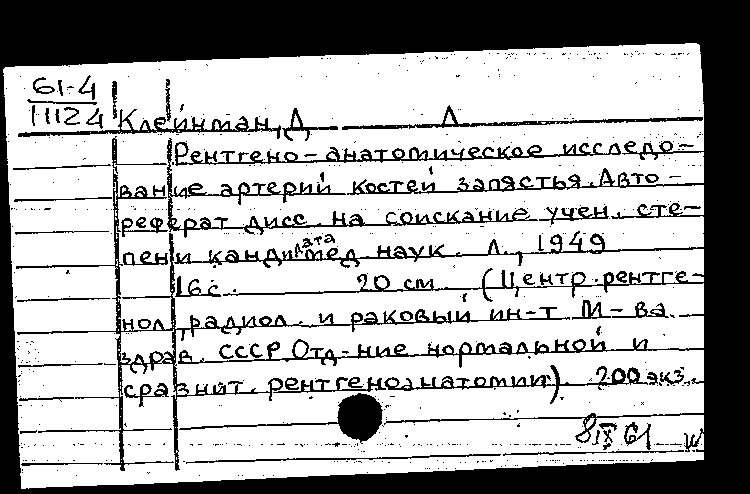 61-4
11124
Клейнман, Д Л
Рентгено-анатомическое исследо-
вание артерий костей запястья. Авто-
реферат дисс. на соискание учен. сте-
пени кандидата мед. наук. Л., 1949
16 с. 20 см. (Центр. рентге-
нол., радиол. и раковый ин-т М-ва
здрав. СССР. Отд-ние нормальной и
сравнит. рентгеноанатомии). 200 экз.
8 IX 61